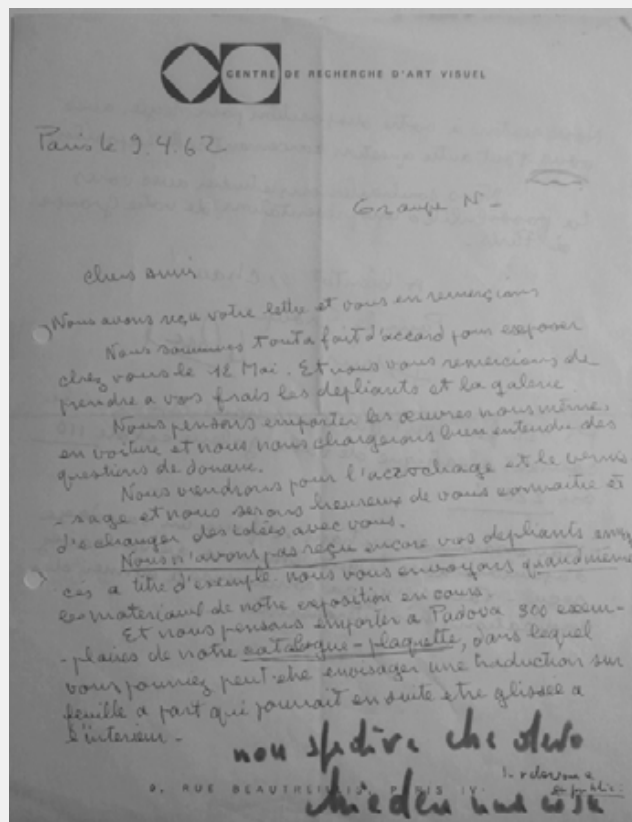 CENTRE DE RECHERCHE D'ART VISUEL
Paris le 9.4.62
Groupe N-
Chers amis
Nous avons reçu votre lettre et vous en remerçions
Nous sommes tout a fait d'accord pour exposer
chez vous le 12 Mai. Et nous vous remercions de
prendre a vos frais les depliants et la galerie
Nous pensons emporter les œuvres nous même,
en voiture et nous nous chargerons bien entendu des
questions de douane.
Nous viendrons pour l'accrochage et le vernis
-sage et nous serons heureux de vous connaitre et
d'echanger des idées avec vous.
Nous n'avons pas reçu encore vos depliants
a titre d'exemple. nous vous envoyons quand même
les materiaux de notre exposition en cours.
Et nous pensons emporter a Padova 300 exem-
-plaires de notre catalogue-plaquette, dans lequel
vous pourriez peut-etre envisager une traduction sur
feuille a part qui pourrait ensuite etre glissée a
l'interieur-
non spedire che devo
9, RUE BEAUTREILLIS, PARIS IV
chieder una cosa